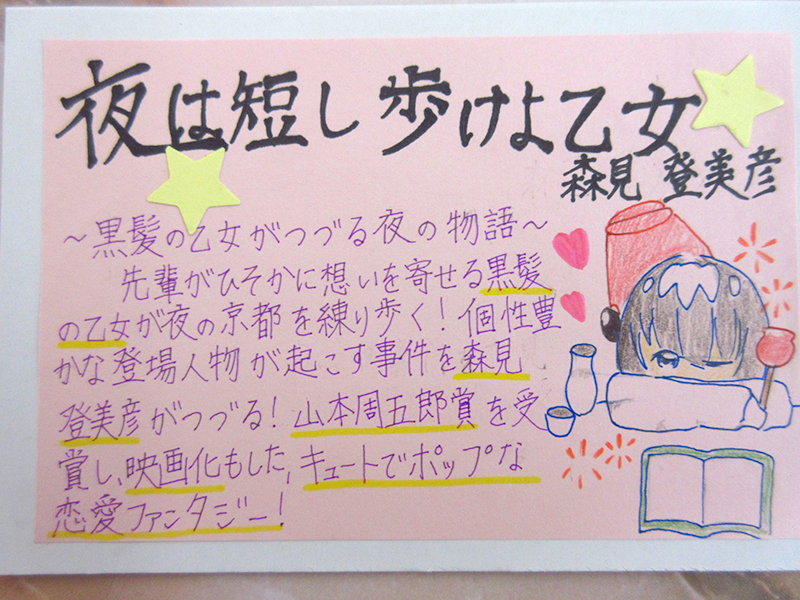 夜は短し 歩けよ乙女
森見 登美彦
～黒髪の乙女がつづる夜の物語～
先輩がひそかに想いを寄せる黒髪
の乙女が夜の京都を練り歩く！個性豊
かな登場人物が起こす事件を森見
登美彦がつづる！山本周五郎賞を受
賞し、映画化もした、キュートでポップな
恋愛ファンタジー！